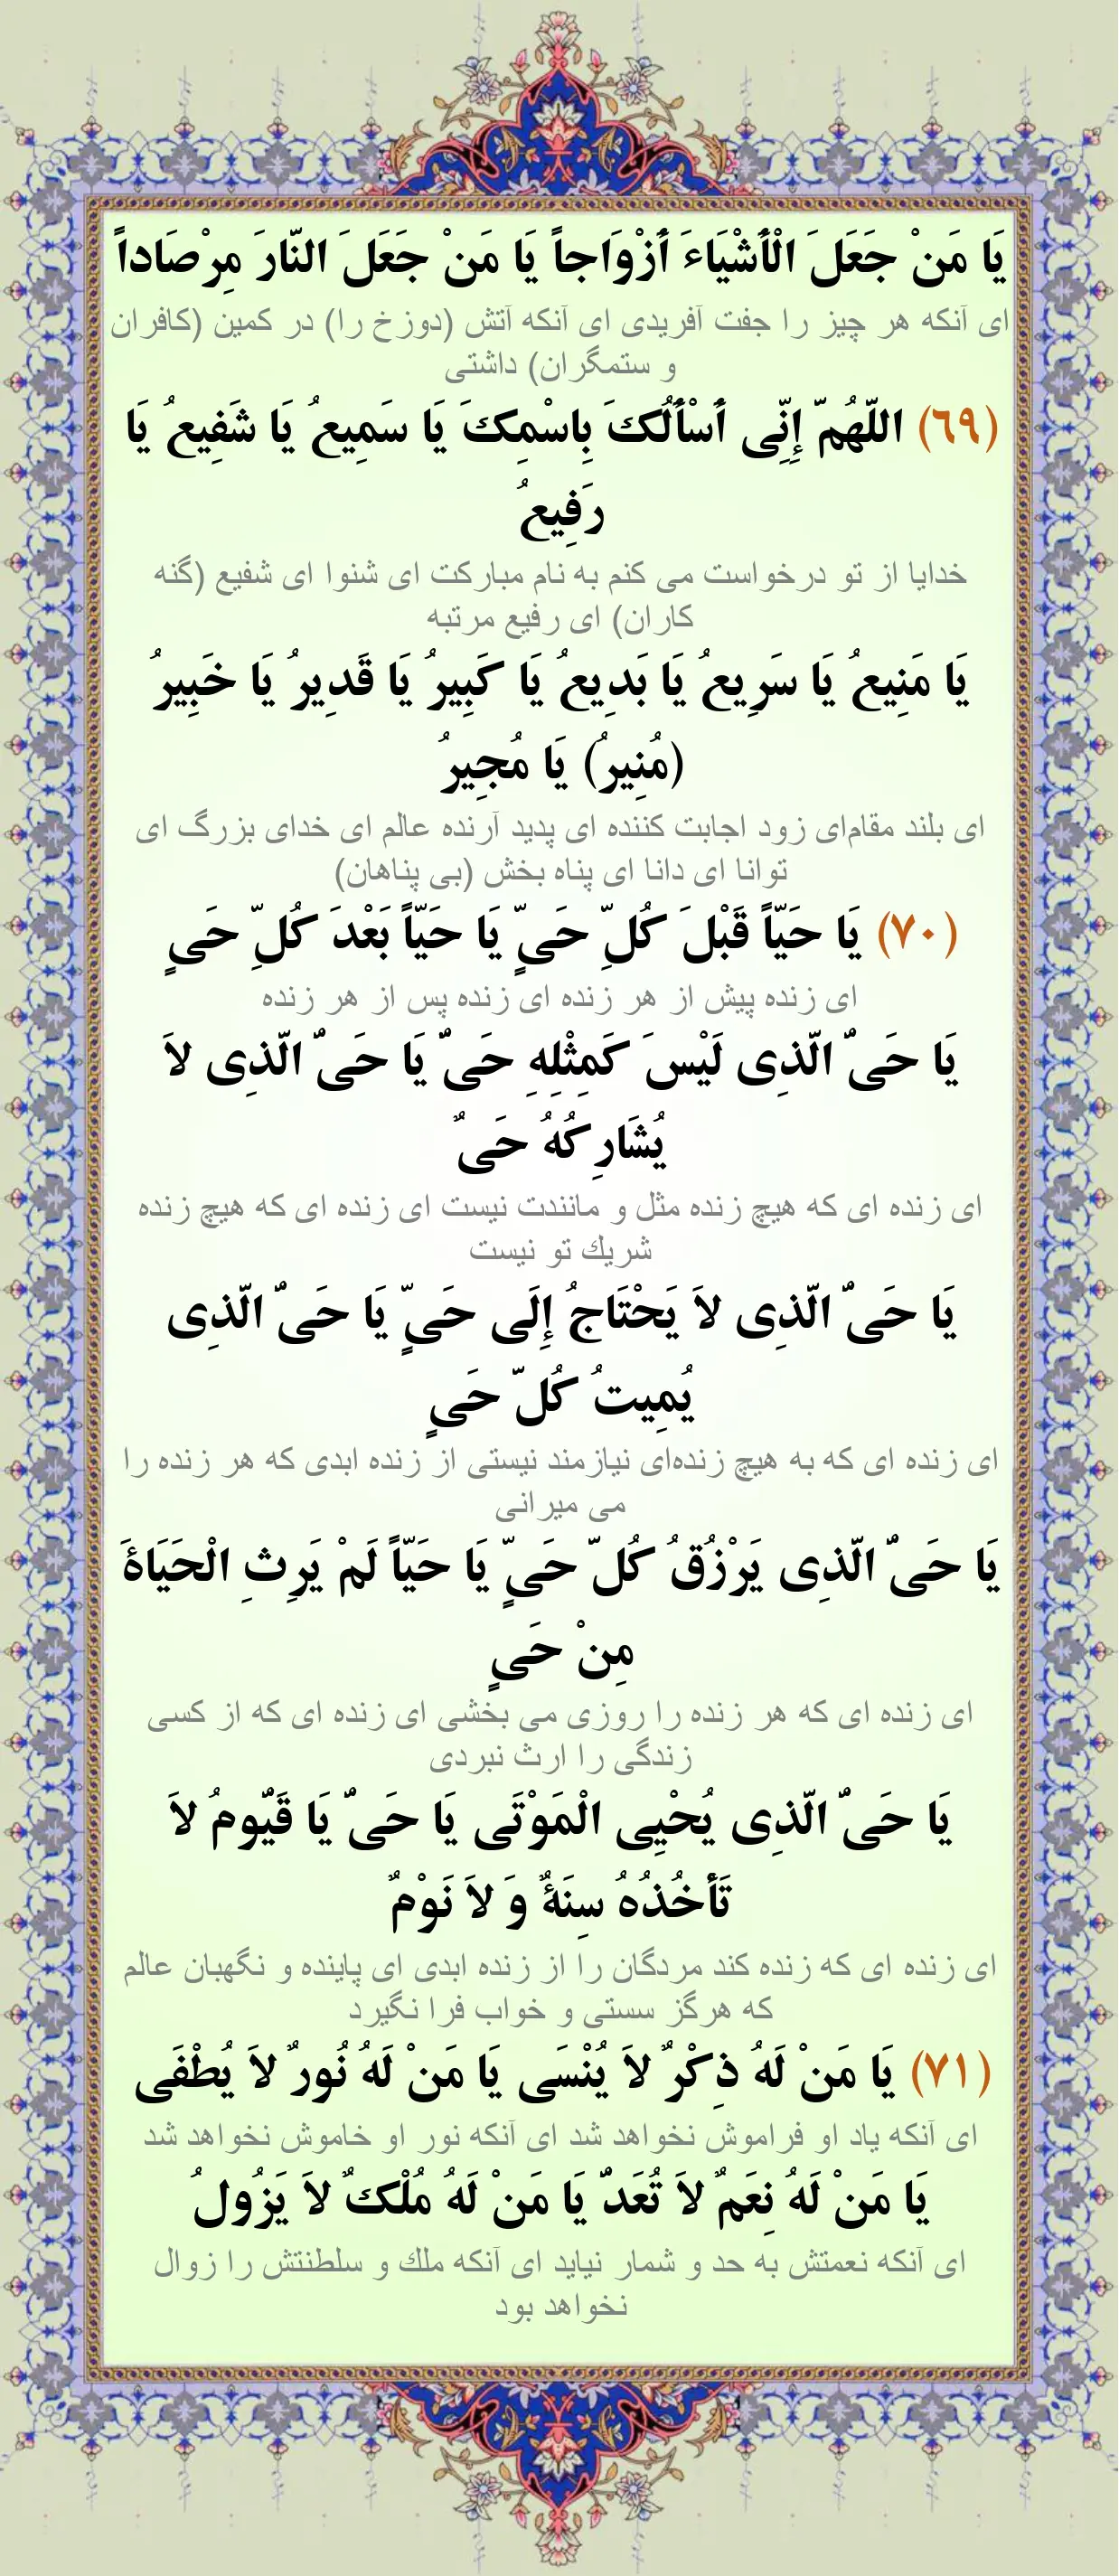 يَا مَنْ جَعَلَ الْأَشْيَاءَ أَزْوَاجاً يَا مَنْ جَعَلَ النّارَ مِرْصَاداً
ای آنکه هر چیز را جفت آفریدی ای آنکه آتش (دوزخ را) در کمین (کافران
و ستمگران) داشتی
(٦٩) اللّهُمّ إِنِّی أَسْأَلُکَ بِاسْمِکَ يَا سَمِيعُ يَا شَفِيعُ يَا
رَفِيعُ
خدایا از تو درخواست می کنم به نام مبارکت ای شنوا ای شفیع (گنه
کاران) ای رفیع مرتبه
يَا مَنِيعُ يَا سَرِيعُ يَا بَدِيعُ يَا کَبِيرُ يَا قَدِيرُ يَا خَبِيرُ
(مُنِيرُ) يَا مُجِيرُ
ای بلند مقام‌ای زود اجابت کننده ای پدید آرنده عالم ای خدای بزرگ ای
توانا ای دانا ای پناه بخش (بی پناهان)
(٧٠) يَا حَيّاً قَبْلَ کُلِّ حَیٍّ يَا حَيّاً بَعْدَ کُلِّ حَیٍ
ای زنده پیش از هر زنده ای زنده پس از هر زنده
يَا حَیٌ الّذِی لَيْسَ کَمِثْلِهِ حَیٌ يَا حَیٌ الّذِی لاَ
يُشَارِکُهُ حَیٌ
ای زنده ای که هیچ زنده مثل و مانندت نیست ای زنده ای که هیچ زنده
شریك تو نیست
يَا حَیٌ الّذِی لاَ يَحْتَاجُ إِلَی حَیٍّ يَا حَیٌ الّذِی
يُمِيتُ کُلّ حَیٍ
ای زنده ای که به هیچ زنده‌ای نیازمند نیستی از زنده ابدی که هر زنده را
می میرانی
يَا حَیٌ الّذِی يَرْزُقُ کُلّ حَیٍّ يَا حَيّاً لَمْ يَرِثِ الْحَيَاةَ
مِنْ حَیٍ
ای زنده ای که هر زنده را روزی می بخشی ای زنده ای که از کسی
زندگی را ارث نبردی
يَا حَیٌ الّذِی يُحْيِی الْمَوْتَی يَا حَیٌ يَا قَيّومُ لاَ
تَأْخُذُهُ سِنَةٌ وَ لاَ نَوْمٌ
ای زنده ای که زنده کند مردگان را از زنده ابدی ای پاینده و نگهبان عالم
که هرگز سستی و خواب فرا نگیرد
(٧١) يَا مَنْ لَهُ ذِکْرٌ لاَ يُنْسَی يَا مَنْ لَهُ نُورٌ لاَ يُطْفَی
ای آنکه یاد او فراموش نخواهد شد ای آنکه نور او خاموش نخواهد شد
يَا مَنْ لَهُ نِعَمٌ لاَ تُعَدّ يَا مَنْ لَهُ مُلْکٌ لاَ يَزُولُ
ای آنکه نعمتش به حد و شمار نیاید ای آنکه ملك و سلطنتش را زوال
نخواهد بود